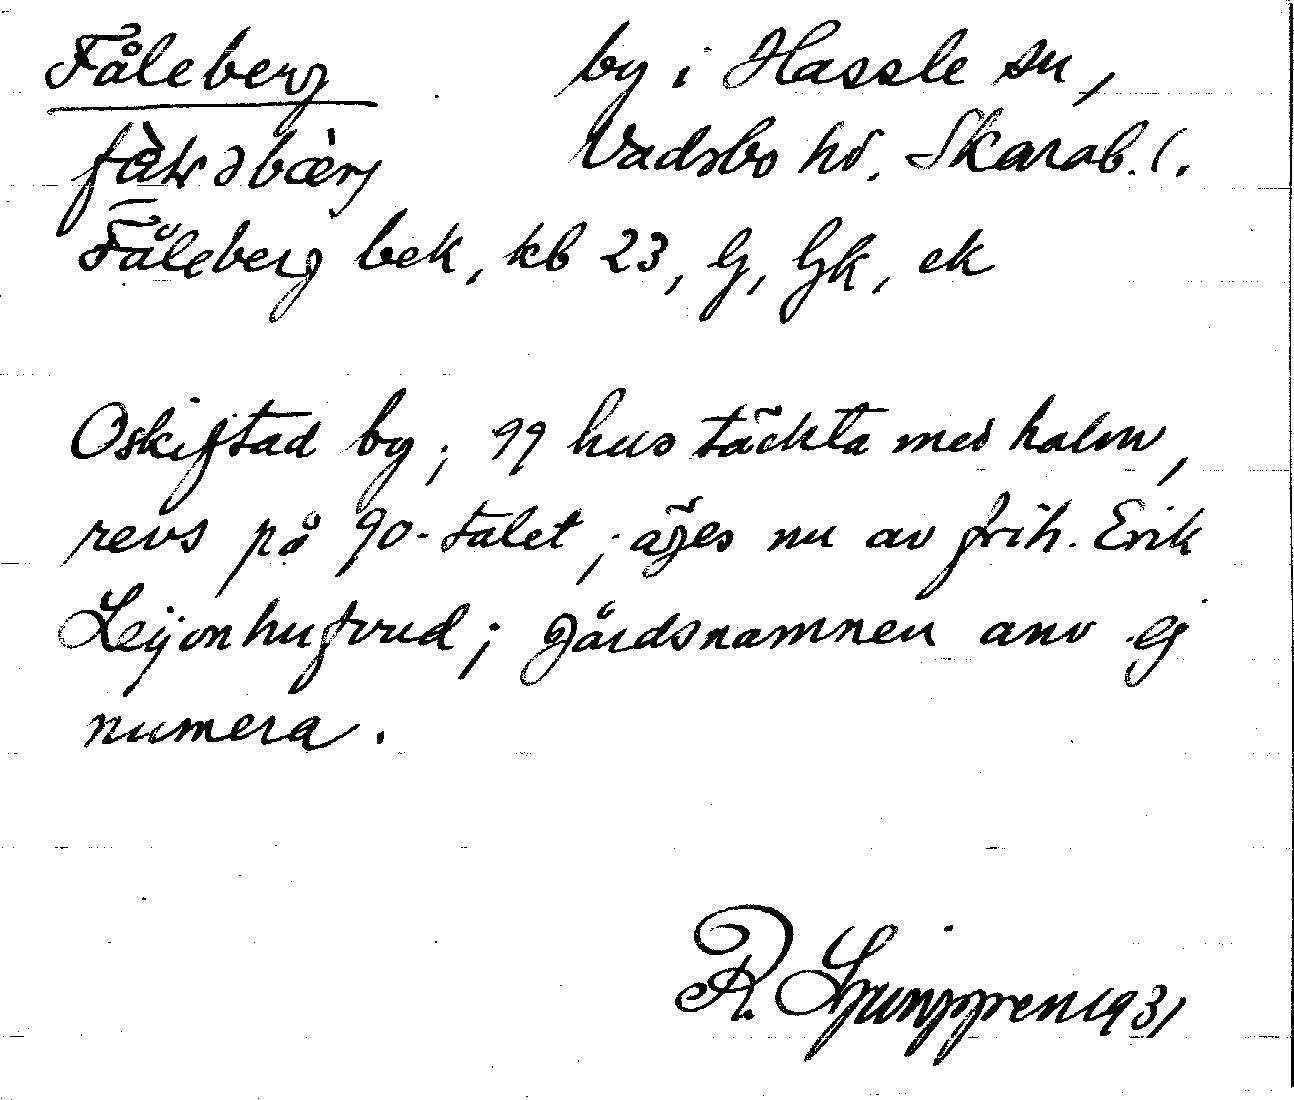 Fåleberg by i Hassle sn,
Vadsbo hd. Skarab. l.
Fåleberg bek, kb 23, G, Gk, ek
Oskiftad by; 99 hus täckta med halm,
revs på 90-talet; äges nu av frih. Erik
Leijonhufvud; gårdsnamnen anv ej
numera.
R. Ljunggren 1931